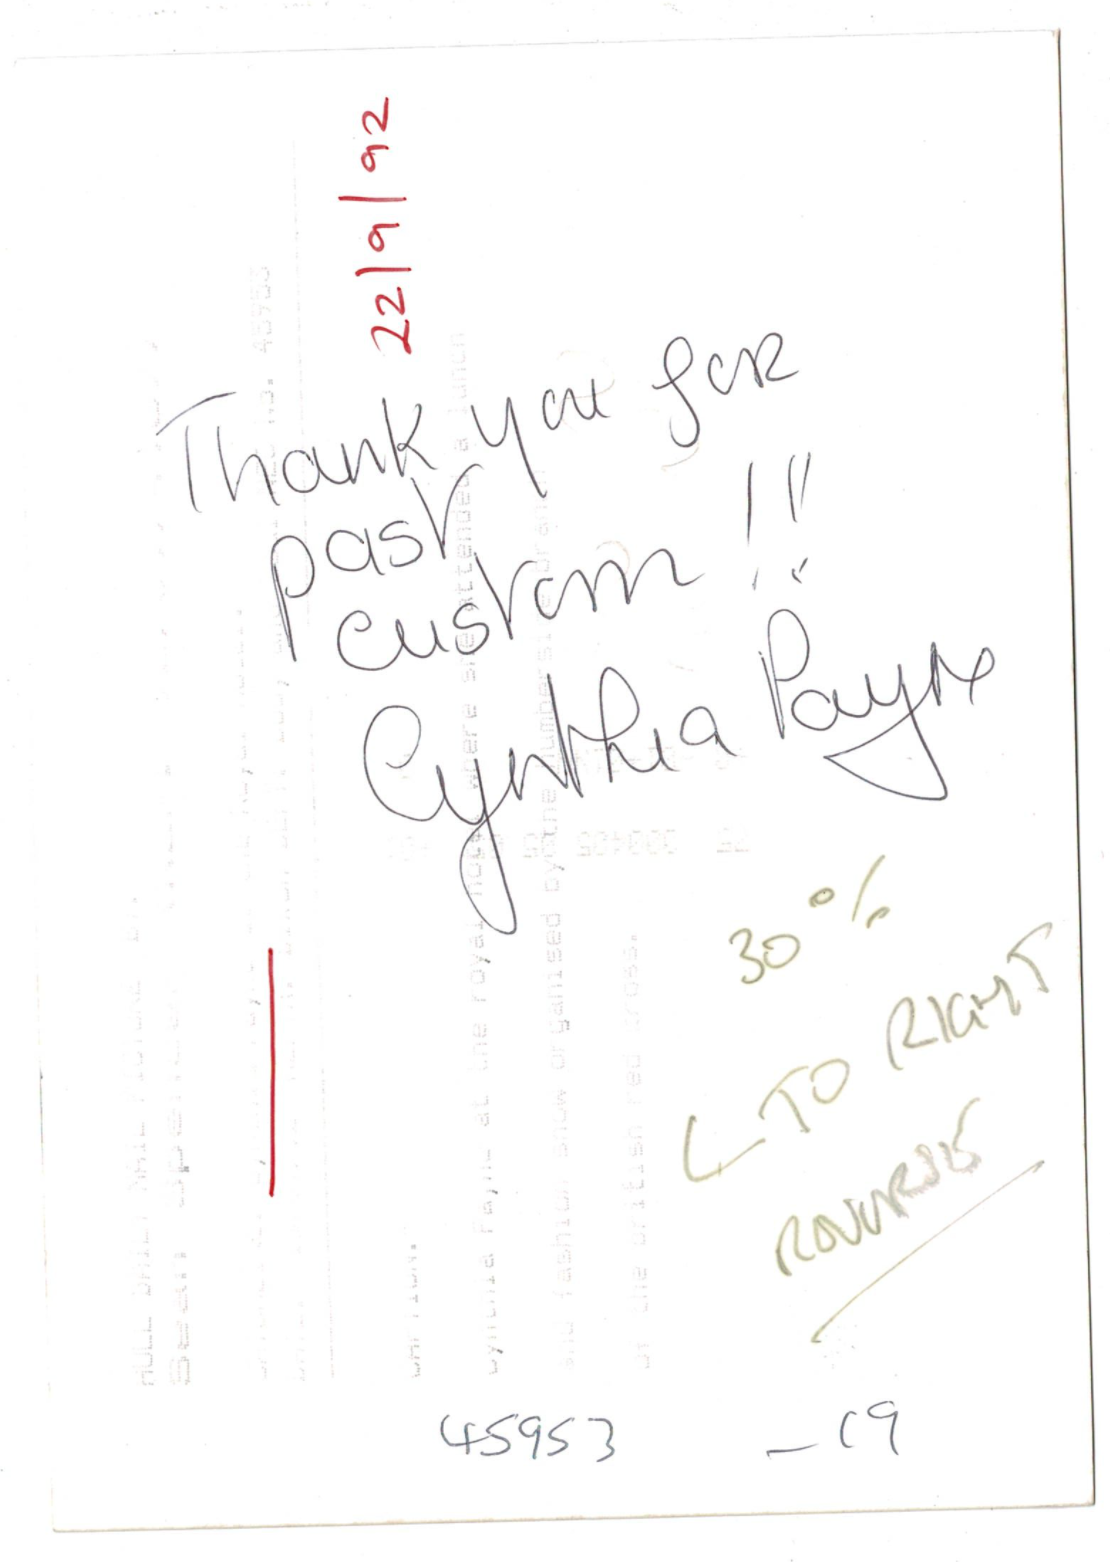 22/9/92
Thank you for
past
custom !!
Cynthia Payne
30%
L TO RIGHT
REVERSE
45953 _ 19
HULL DAILY MAIL PICTURE
NEG NO. 45953
CAPTION.
Cynthia Payne at the royal hotel where she attended a lunch
and fashion show organised by the Humberside branch
of the british red cross.